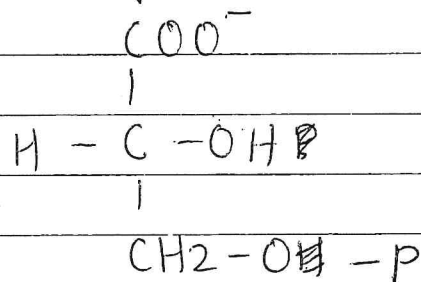 COO⁻
|
H - C - OH
|
CH2 - O - P